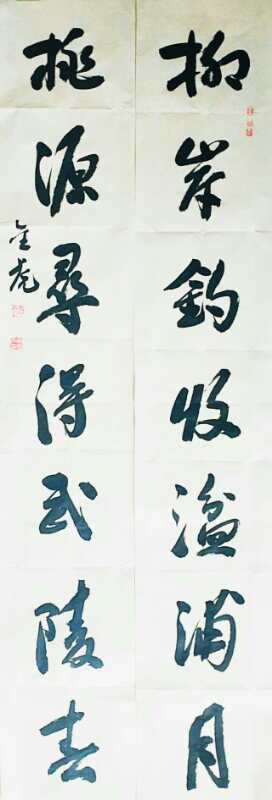 柳岸鈎收湓浦月
桃源尋得武陵春
金虎